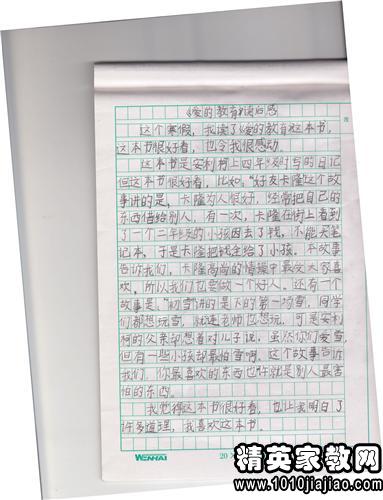 《爱的教育》读后感
这个寒假，我读了《爱的教育》这本书，
这本书很好看，也令我很感动。
这本书是安利柯上四年级时写的日记
但这本书很好看，比如。“好友卡隆这个故
事讲的是，卡隆为人很好，经常把自己的
东西借给别人。有一次，卡隆在街上看到
了一个二年级的小孩因丢了钱，不能买笔
记本，于是卡隆把钱全给了小孩。本故事
告诉我们，卡隆高尚的情操中最受大家喜
欢。所以我们也要做一个好人。还有一个
故事是，“初雪”讲的是下的第一场雪，同学
们都想玩雪，就连老师也想玩，可是安利
柯的父亲却想着对儿子说，虽然你们爱雪，
但有一些小孩却最怕雪啊。这个故事告诉
我们，你最喜欢的东西也许就是别人最害
怕的东西。
我觉得这本书很好看，也让我明白了
许多道理，我喜欢这本书。
WENHAI
精英家教网
www.1010jiajiao.com